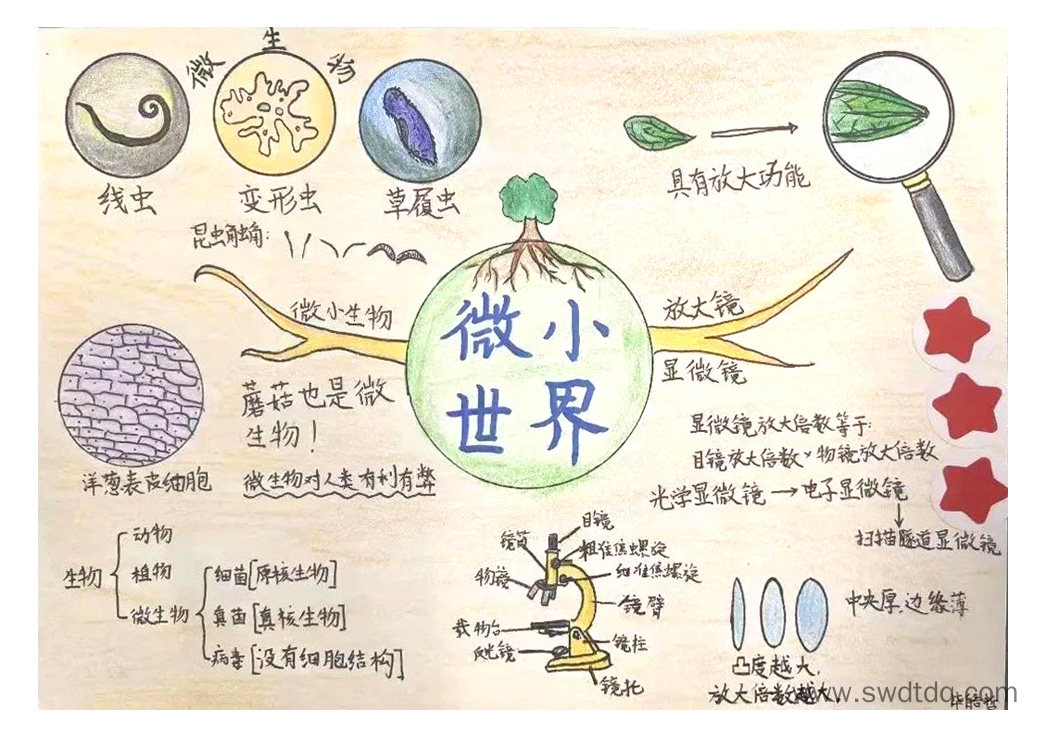 微生物
线虫
变形虫
草履虫
昆虫触角:
具有放大功能
微小生物
放大镜
显微镜
微小
世界
蘑菇也是微
生物！
微生物对人类有利有弊
洋葱表皮细胞
显微镜放大倍数等于:
目镜放大倍数×物镜放大倍数
光学显微镜→电子显微镜
扫描隧道显微镜
生物
动物
植物
微生物
细菌[原核生物]
真菌[真核生物]
病毒[没有细胞结构]
目镜
镜筒
粗准焦螺旋
细准焦螺旋
物镜
镜臂
载物台
镜柱
反光镜
镜托
中央厚,边缘薄
凸度越大,
放大倍数越大.
www.swdtdq.com